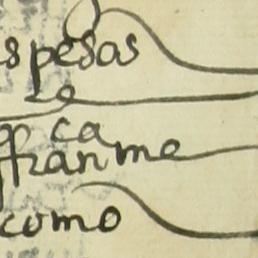 s pesas
ca
ffran me
como